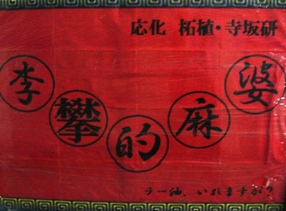 応化 柘植・寺坂研
李攀的麻婆
ラー油、いれますか?